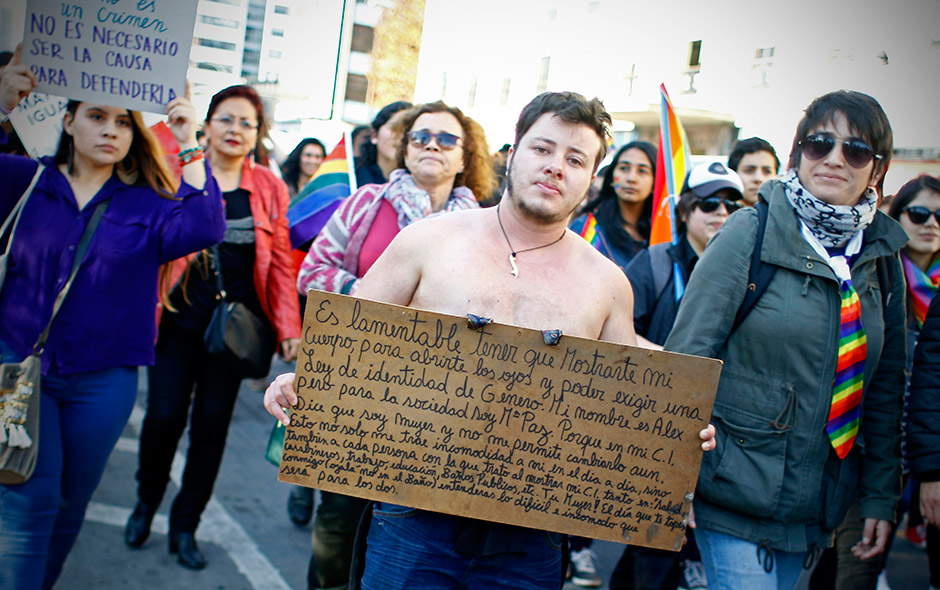 no es
un crimen
NO ES NECESARIO
SER LA CAUSA
PARA DEFENDERLA
IGUA
Es lamentable tener que Mostrarte mi
Cuerpo, para abrirte los ojos y poder exigir una
Ley de identidad de Genero. Mi nombre es Alex
pero para la sociedad soy Mª Paz. Porque en mi C.I.
Dice que soy mujer y no me permite cambiarlo aun.
Esto no solo me trae incomodidad a mi en el día a dia, sino
tambien a cada persona con la que trato al mostrar mi C.I, tanto en: Salud,
carabineros, trabajo, educación, Baños Públicos, etc. Tu Mujer! El día que te topes
conmigo (ojala no en el Baño) entenderas lo dificil e incomodo que
será para los dos.